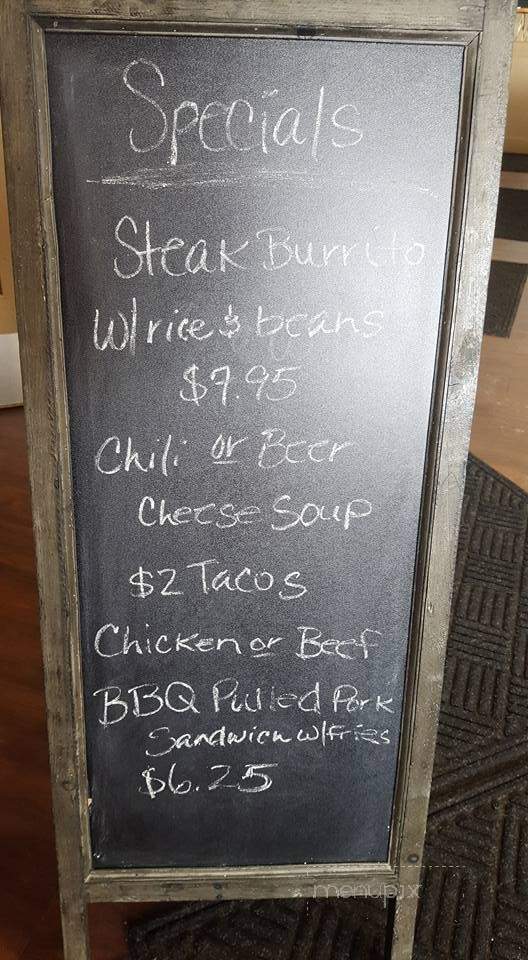 Specials
Steak Burrito
W/rice & beans
$7.95
Chili or Beer
Cheese Soup
$2 Tacos
Chicken or Beef
BBQ Pulled Pork
Sandwich w/fries
$6.25
menupix